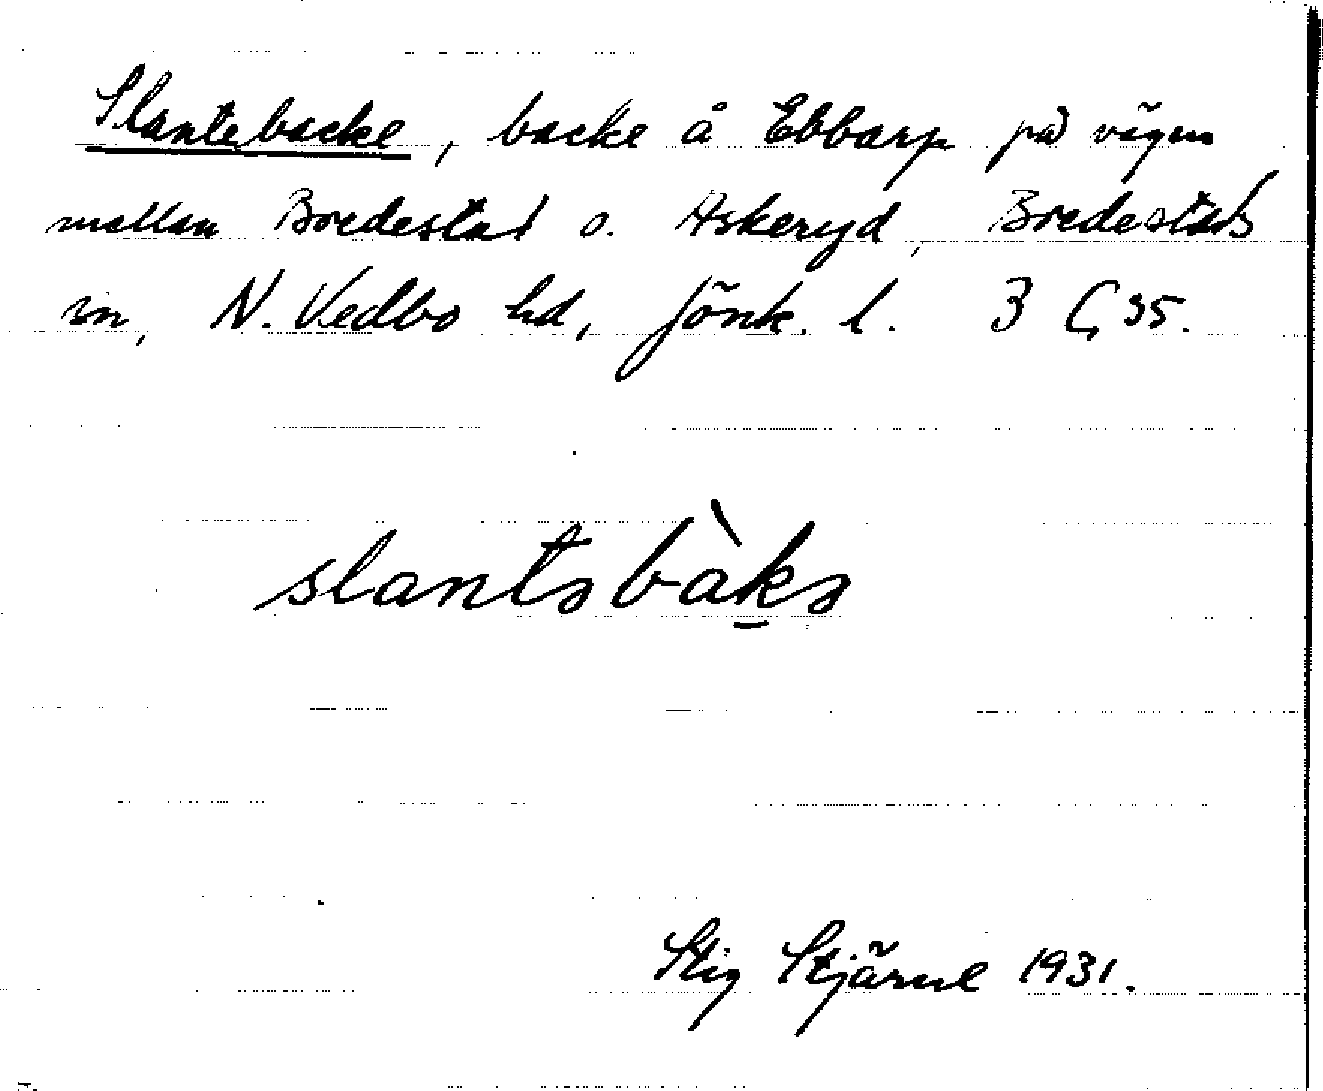 Slantebacke, backe å Ebbarp på vägen
mellan Bredestad o. Askeryd, Bredestads
sn, N. Vedbo hd, Jönk. l. 3 Ç 35.
slantəbàkə
Stig Stjärne 1931.